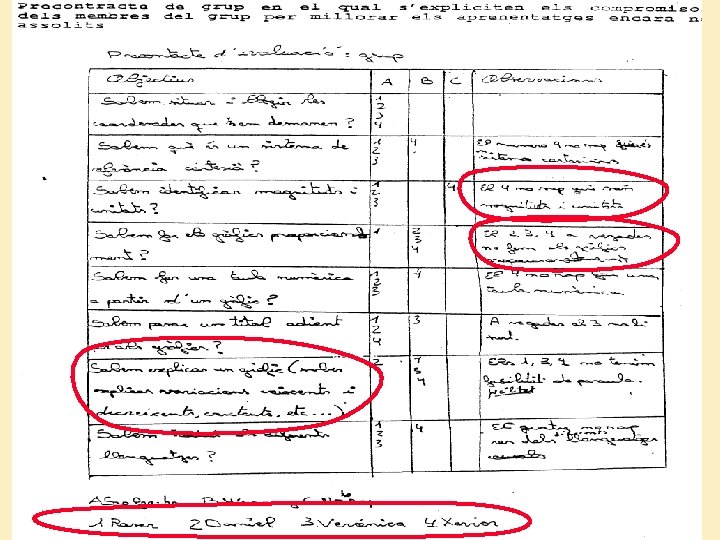 Precontracte de grup en el qual s'expliciten els compromiso
dels membres del grup per millorar els aprenentatges encara n
assolits
Precontracte d'avaluació: grup
Objectius A B C Observacions
Sabem situar i llegir les
coordenades que ens demanen? 1 2 3 4
Sabem què és un sistema de
referència cartesià? 1 2 3 4 El numero 4 no sap què és
sistema cartesià
Sabem identificar magnituts i
unitats? 1 2 3 4 El 4 no sap què són
magnituts i unitats
Sabem fer els gràfics proporcional
ment? 1 2 3 4 El 2, 3, 4 a vegades
no fem els gràfics
Sabem fer una taula numèrica
a partir d'un gràfic? 1 2 3 4 El 4 no sap fer una
taula numèrica.
Sabem posar un títol adient
gràfics? 1 2 4 3 A vegades el 3 no
Sabem explicar un gràfic (saber
explicar variacions creixents i
decreixents, constants, etc...) 2 1 3 4 Els 1, 3, 4 no tenim
facilitat de paraula.
Sabem els següents
llenguatges? 1 2 3 4 El quatre no sap
dels llenguatges
1 Roser 2 Daniel 3 Verònica 4 Xavier